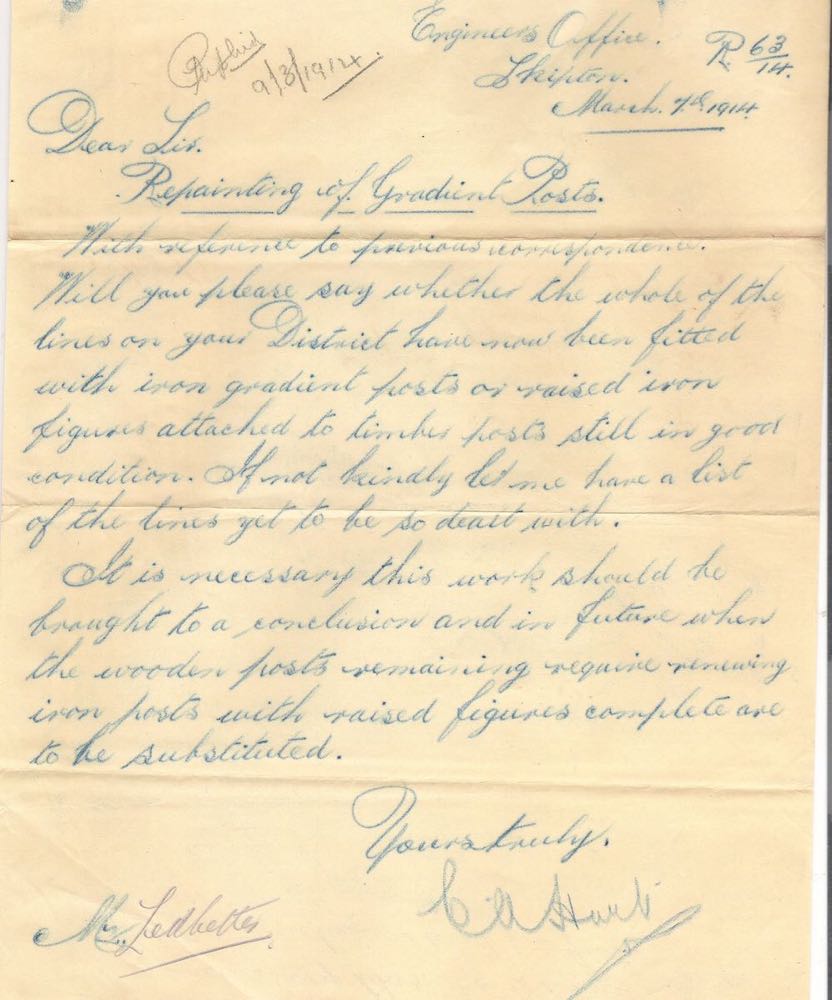 Engineers Office.
Skipton.
R 63/14.
March. 7th 1914
Replied
9/3/1914
Dear Sir.
Repainting of Gradient Posts.
With reference to previous correspondence.
Will you please say whether the whole of the
lines on your District have now been fitted
with iron gradient posts or raised iron
figures attached to timber posts still in good
condition. If not kindly let me have a list
of the lines yet to be so dealt with.
It is necessary this work should be
brought to a conclusion and in future when
the wooden posts remaining require renewing
iron posts with raised figures complete are
to be substituted.
Yours truly.
Mr. Ledbetter.